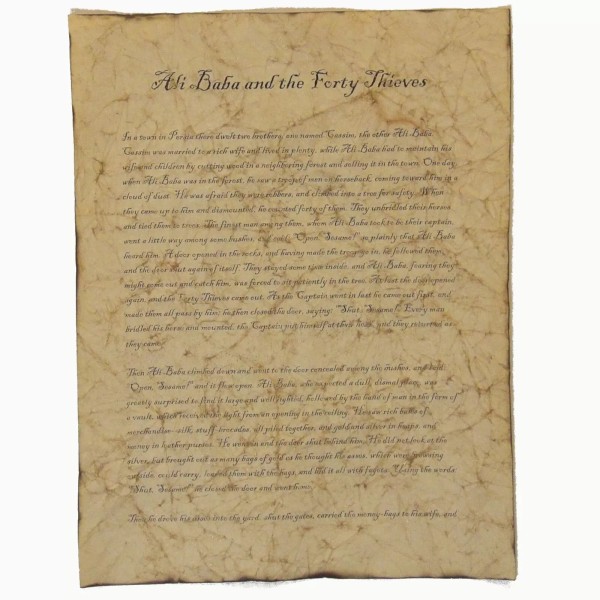 Ali Baba and the Forty Thieves
In a town in Persia there dwelt two brothers, one named Cassim, the other Ali Baba.
Cassim was married to a rich wife and lived in plenty, while Ali Baba had to maintain his
wife and children by cutting wood in a neighboring forest and selling it in the town. One day,
when Ali Baba was in the forest, he saw a troop of men on horseback, coming toward him in a
cloud of dust. He was afraid they were robbers, and climbed into a tree for safety. When
they came up to him and dismounted, he counted forty of them. They unbridled their horses
and tied them to trees. The finest man among them, whom Ali Baba took to be their captain,
went a little way among some bushes, and said, "Open, Sesame!" so plainly that Ali Baba
heard him. A door opened in the rocks, and having made the troop go in, he followed them,
and the door shut again of itself. They stayed some time inside, and Ali Baba, fearing they
might come out and catch him, was forced to sit patiently in the tree. At last the door opened
again, and the Forty Thieves came out. As the Captain went in last he came out first, and
made them all pass by him; he then closed the door, saying: "Shut, Sesame!" Every man
bridled his horse and mounted, the Captain put himself at their head, and they returned as
they came.
Then Ali Baba climbed down and went to the door concealed among the bushes, and said:
"Open, Sesame!" and it flew open. Ali Baba, who expected a dull, dismal place, was
greatly surprised to find it large and well lighted, hollowed by the hand of man in the form of
a vault, which received the light from an opening in the ceiling. He saw rich bales of
merchandise—silk, stuff-brocades, all piled together, and gold and silver in heaps, and
money in leather purses. He went in and the door shut behind him. He did not look at the
silver, but brought out as many bags of gold as he thought his asses, which were browsing
outside, could carry, loaded them with the bags, and hid it all with fagots. Using the words:
"Shut, Sesame!" he closed the door and went home.
Then he drove his asses into the yard, shut the gates, carried the money-bags to his wife, and